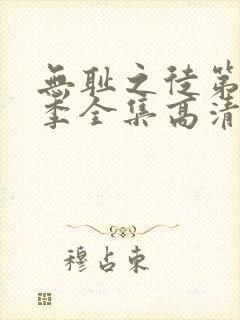 無耻之徒第
季全集高清
穆占東